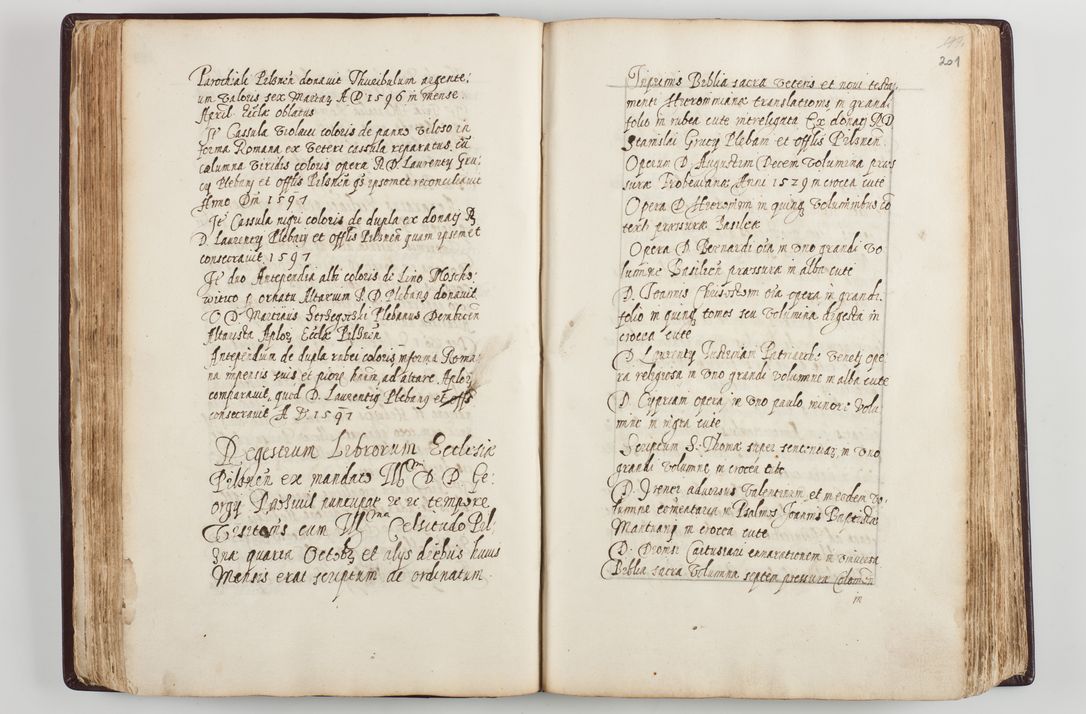 Parochiali Pilsnēn donavit Thuribulum argente:
um valoris sex Marcaꝝ A D 1596 in mense
April Eccłæ oblatus
Itē Cassula violacei coloris de panno viloso in
forma Romana ex veteri cassula reparatus, cū
calumna viridis coloris opera R D Laurentÿ Gru:
cÿ Plebanÿ et offīlis Pilsnēn qs ipsemet reconciliavit
Anno Dni 1597
Itē Cassula nigri coloris de dupla ex donatÿ R
D. Laurencÿ Plebanÿ et offīlis Pilsnēn quam ipsemet
consecravit 1597
Itē duo Antependia albi coloris de Lino Moscho:
witico ornatu Altarium D. Plebang donavit
D Martinus Plebanus Dembicen
Altarista Aploꝝ Ecclæ Pilsnēn
Antependium de dupla rubei coloris in forma Roma:
na impensis suis et ad altare Aploꝝ
comparavit, quod D. Laurentig Plebang et offīs
consecravit A D. 1597
Regestrum Librorum Ecclesiæ
Pilsnēn ex mandato Illmi D. D. Ge:
orgÿ nuncupat tempore
Visitatōnis cum Illma Celsitudo Pil
zna quarta Octobꝝ et alÿs diebus huius
Mensis erat scriptum de ordinatum.
201
Inprimis Biblia sacra veteris et novi testa:
menti Hieronimiana translationis in grandi
folio in rubea cute introligata Ex donatÿ R D
Stanislai Grucÿ Plebani et offīlis Pilsnēn.
Operum D. Augustini Decem volumina præs
suræ Frobenianæ Anni 1529 in crocea cute
Opera D Hieronim in quinqꝫ voluminibus co
texti præssuræ Basileæ
Opera D. Bernardi oīa in uno grandi vo
lumine Basileēn præssura in alba cute
D. Joannis Chrisostom oīa opera in grandi
folio in quinqꝫ tomos seu volumina digesta in
crocea cute
D. Laurentÿ Justiniani Patriarchæ Venetÿ ope
ra religiosa in uno grandi volumine in alba cute
D. Cypriani opera, in uno paulo minori volu
mine in nigra cute
Scriptum S. Thomæ super sentenciaꝝ, in uno
grandi volumine in crocea cute
D. Jrenei adversus Valentinum, et in eodem vo:
lumine comentaria in Psalmos Joannis Baptistæ
Mantuanÿ in crocea cute
D. Dionisi Cartusiani ennarationem in universa
Biblia sacra volumina septem pressuræ Colonien
in